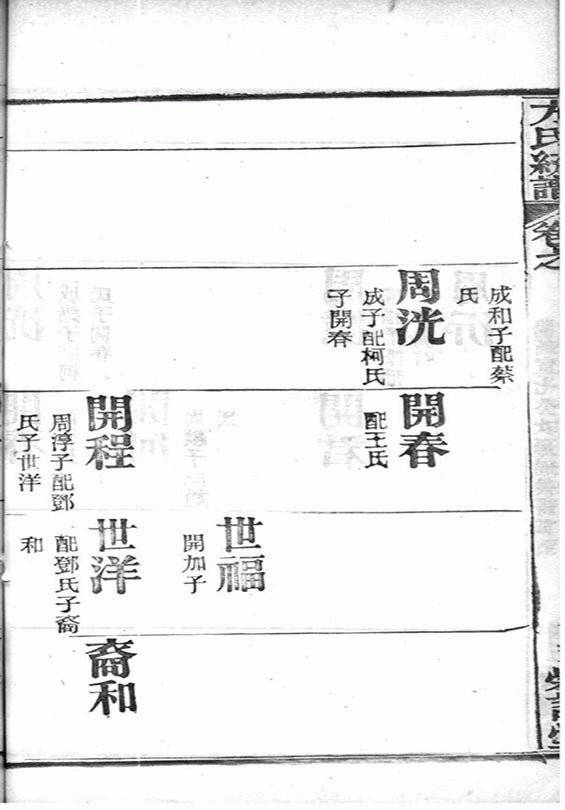 方氏統譜
卷之
成和子配蔡
氏
周洸
成子配柯氏
子開春
開春
配王氏
世福
開加子
開程
周淳子配鄧
氏子世洋
世洋
配鄧氏子裔
和
裔和